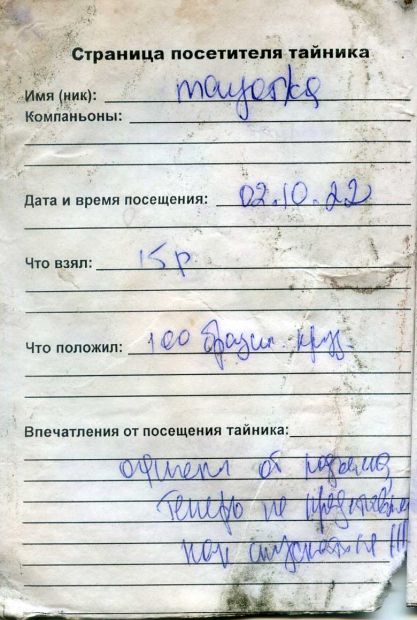 Страница посетителя тайника
Имя (ник):
Компаньоны:
Дата и время посещения: 02.10.22
Что взял: 15 р.
Что положил: 100 бразил. круз.
Впечатления от посещения тайника:
от подъема,
теперь не
как спускаться !!!